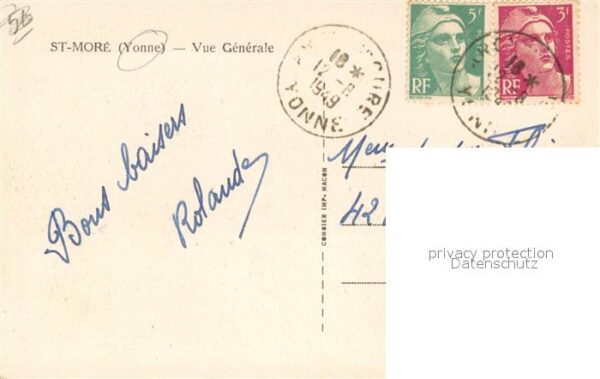 56
ST-MORÉ (Yonne) — Vue Générale
18 *
12 - 8
1949
YONNE
5f
RF
3f
POSTES
RF
18 *
Bons baisers
Rolande
COMBIER IMP. MACON
42
privacy protection
Datenschutz